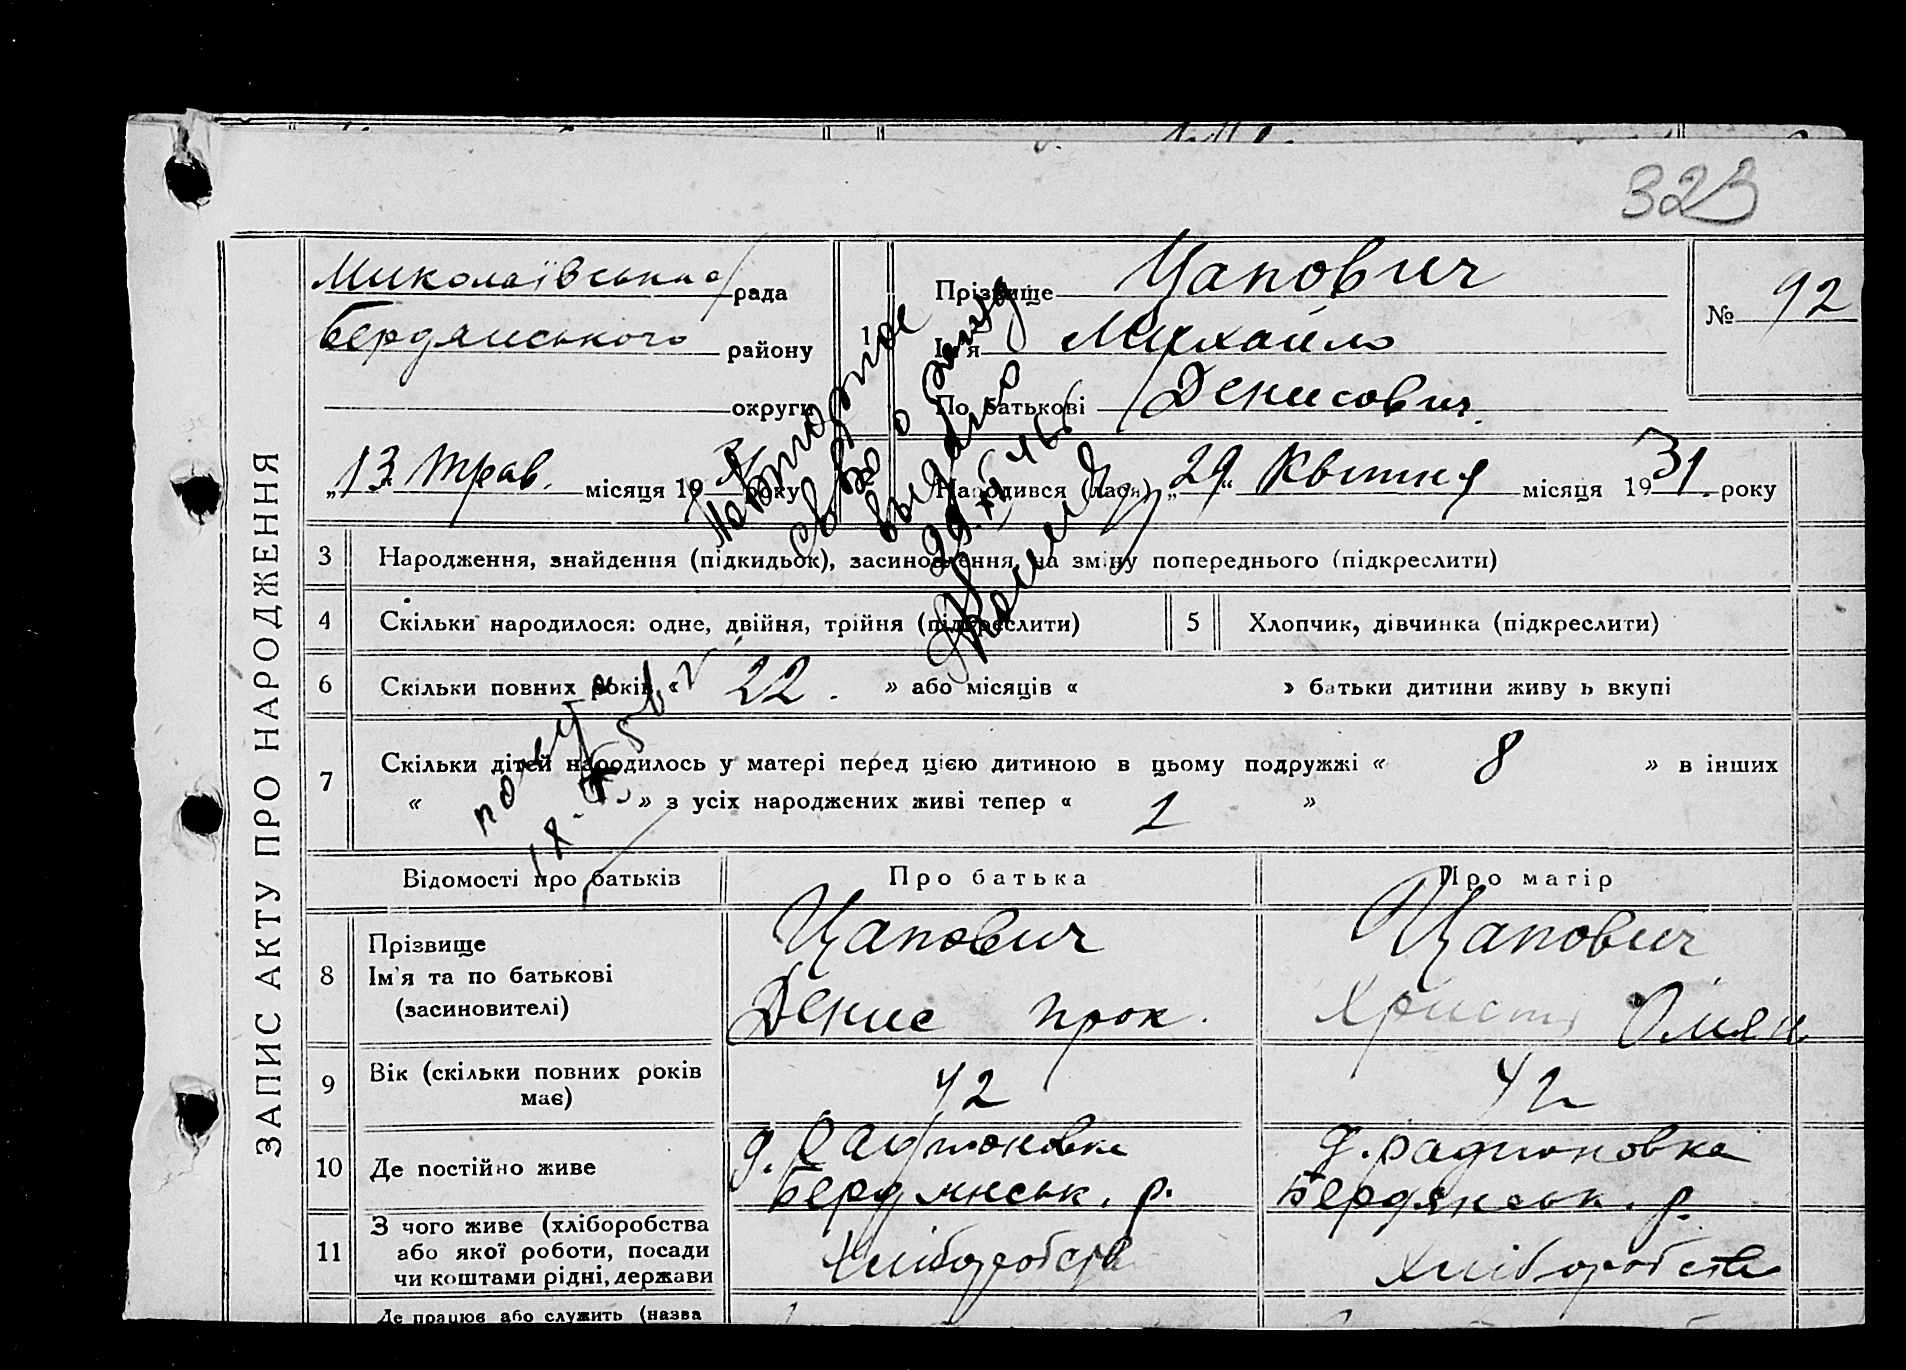 323
ЗАПИС АКТУ ПРО НАРОДЖЕННЯ
Миколаївська рада
Бердянського району
округи
"13" трав. місяця 19 року
Прізвище Цапович
Ім'я Михайло
По батькові Денисович
№ 92
Народився (лася) "29" Квітня місяця 1931 року
Повторное
св-во о
выдано
3 Народження, знайдення (підкидьок), засиновлення, на зміну попереднього (підкреслити)
4 Скільки народилося: одне, двійня, трійня (підкреслити)
5 Хлопчик, дівчинка (підкреслити)
6 Скільки повних років « 22 . » або місяців « » батьки дитини живуть вкупі
7 Скільки дітей народилось у матері перед цією дитиною в цьому подружжі « 8 » в інших
« » з усіх народжених живі тепер « 1 »
Відомості про батьків Про батька Про матір
8 Прізвище
Ім'я та по батькові
(засиновителі)
Цапович
Денис Прок.
Цапович
Христя
9 Вік (скільки повних років
має)
42
42
10 Де постійно живе
д. Радионовка
Бердянськ. р.
д. Радионовка
Бердянськ. р.
11 З чого живе (хліборобства
або якої роботи, посади
чи коштами рідні, держави
Хліборобств
Хліборобств
Де працює або служить (назва